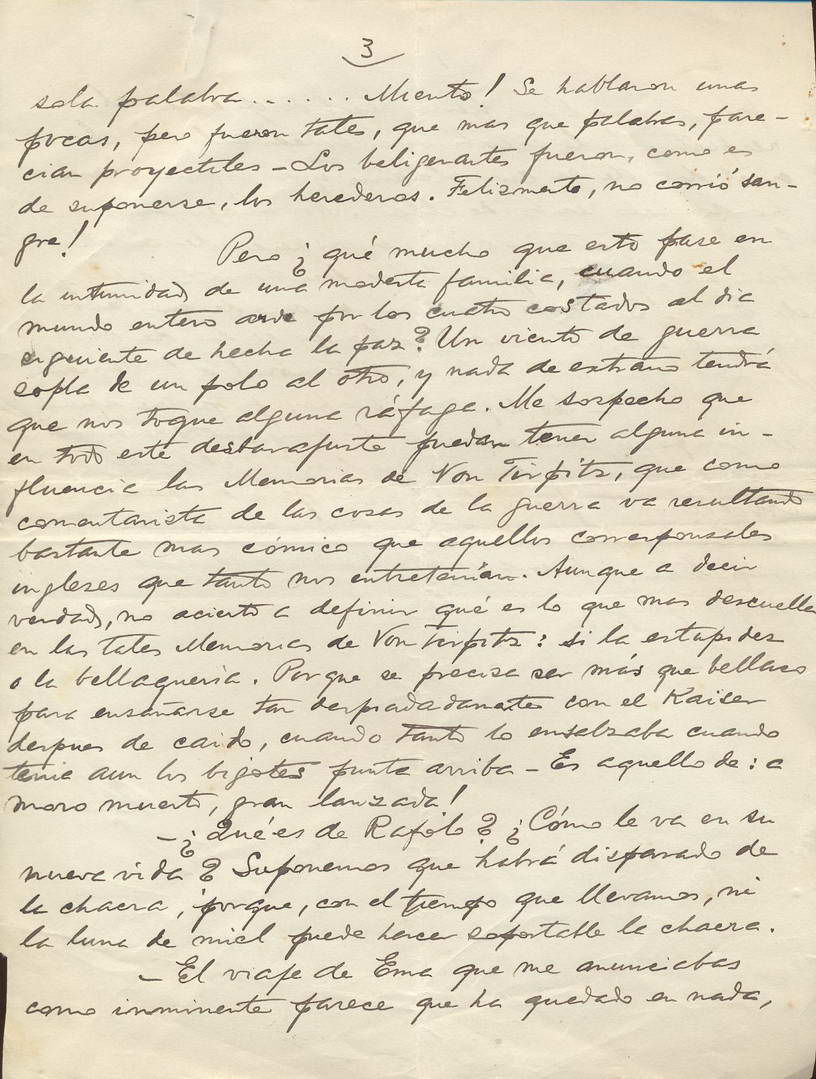 3
sola palabra...... Miento! Se hablaron unas
pocas, pero fueron tales, que mas que palabras, pare-
cian proyectiles – Los beligerantes fueron, como es
de suponerse, los herederos. Felizmente, no corrió san-
gre!
Pero ¿ qué mucho que esto pase en
la intimidad de una modesta familia, cuando el
mundo entero arde por los cuatro costados al dia
siguiente de hecha la paz? Un viento de guerra
sopla de un polo al otro, y nada de extraño tendrá
que nos toque alguna ráfaga. Me sospecho que
en todo este desbarajuste puedan tener alguna in-
fluencia las Memorias de Von Tirpitz, que como
comentarista de las cosas de la guerra va resultando
bastante mas cómico que aquellos corresponsales
ingleses que tanto nos entretenian. Aunque a decir
verdad, no acierto a definir qué es lo que mas descuella
en las tales Memorias de Von Tirpitz: si la estupidez
o la bellaquería. Porque se precisa ser más que bellaco
para ensañarse tan despiadadamente con el Kaiser
despues de caido, cuando tanto lo ensalzaba cuando
tenia aun los bigotes punta arriba – Es aquello de: a
moro muerto, gran lanzada!
– ¿Qué es de Rafólo? ¿Cómo le va en su
nueva vida? Suponemos que habrá disparado de
la chacra, porque, con el tiempo que llevamos, ni
la luna de miel puede hacer soportable la chacra.
– El viaje de Ema que me anunciabas
como inominente parece que ha quedado en nada,